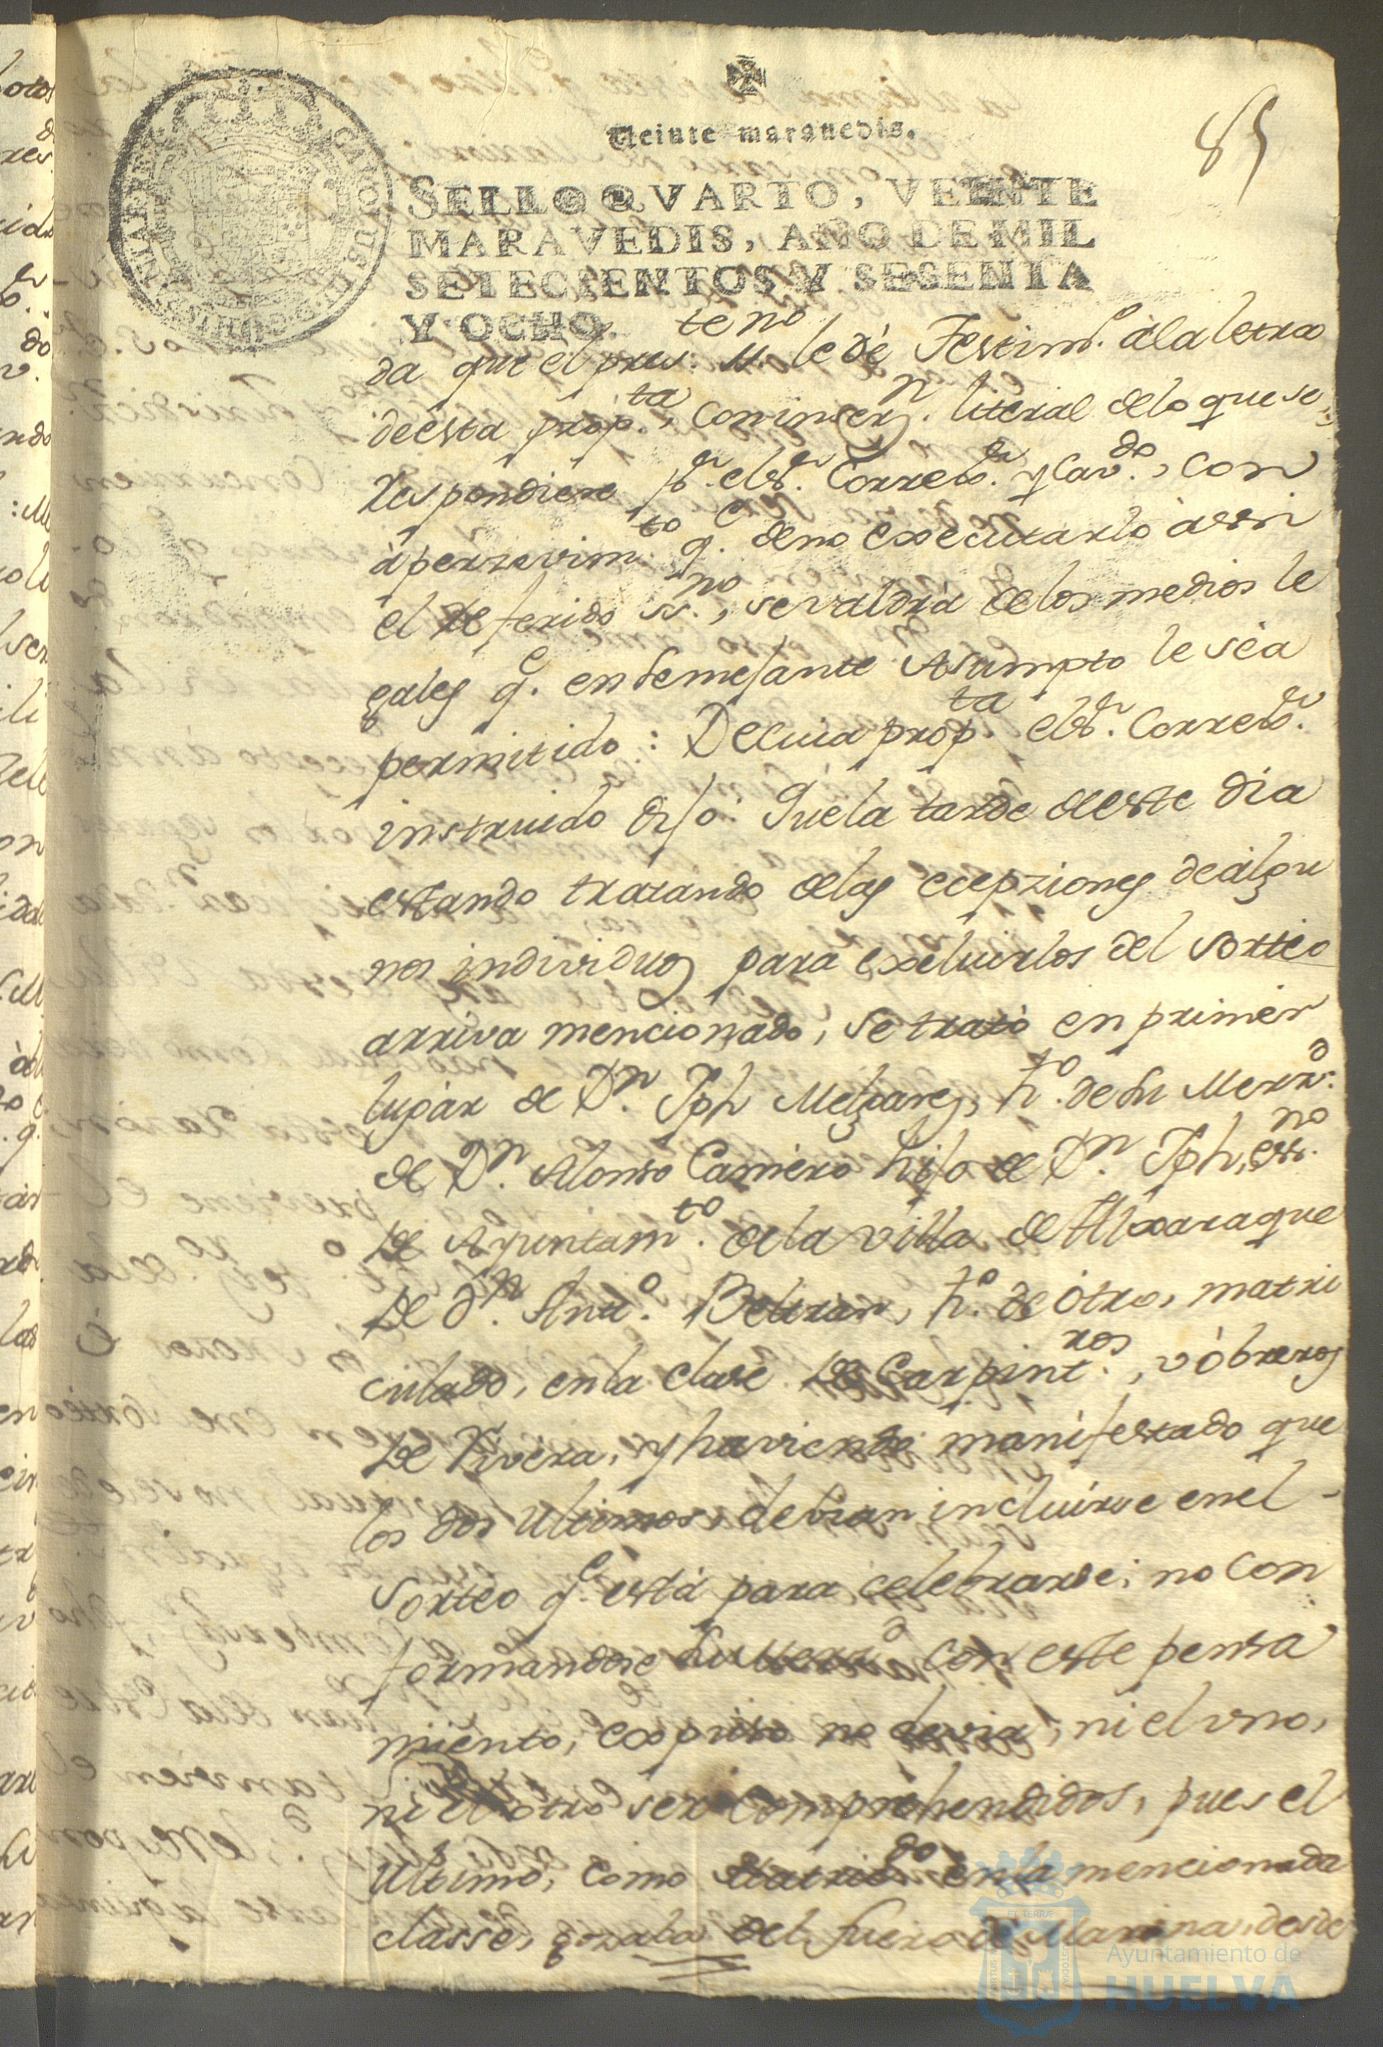 85
Veinte maravedis.
SELLO QVARTO, VEINTE
MARAVEDIS, AÑO DE MIL
SETECIENTOS Y SESENTA
Y OCHO.
CAROLUS
te no
da que el pres. le dè Testimo. à la letra
de esta propta., con insern. literal de lo que se
respondiere pr. el Sr. Corredr. y Cavdo., con
apercevimto. qe. de no executarlo assi
el referido ssno., se valdra de los medios le
gales qe. en semejante Asumpto le séa
permitido: De cuia propta. el Sr. Corredr.
instruido dijo: Que la tarde de este dia
estando tratando de las ecepziones de algu
nos individuos para excluirlos del Sorteo
arriva mencionado, se trató en primer
lugar de Dn. Jph Melgarejo, ho. de su Merzd.
de Dn. Alonso Camero hijo de Dn. Jph, essno.
de Ayuntamto. de la villa de Aljaraque
de Dn. Anto. Beltran, ho. de otro, matri
culado, en la clase de Carpintros., v óbreros
de Rivera, y haviendo manifestado que
los dos Ultimos, debian incluirse en el
Sorteo qe. está para celebrarse; no con
formandose su Merzd. con este pensa
miento, expuso no devia, ni el vno,
ni el otro ser comprehendidos, pues el
Ultimo, como Matricdo. en la mencionada
classe, gozaba del fuero de Marina, desde
Ayuntamiento de
HUELVA